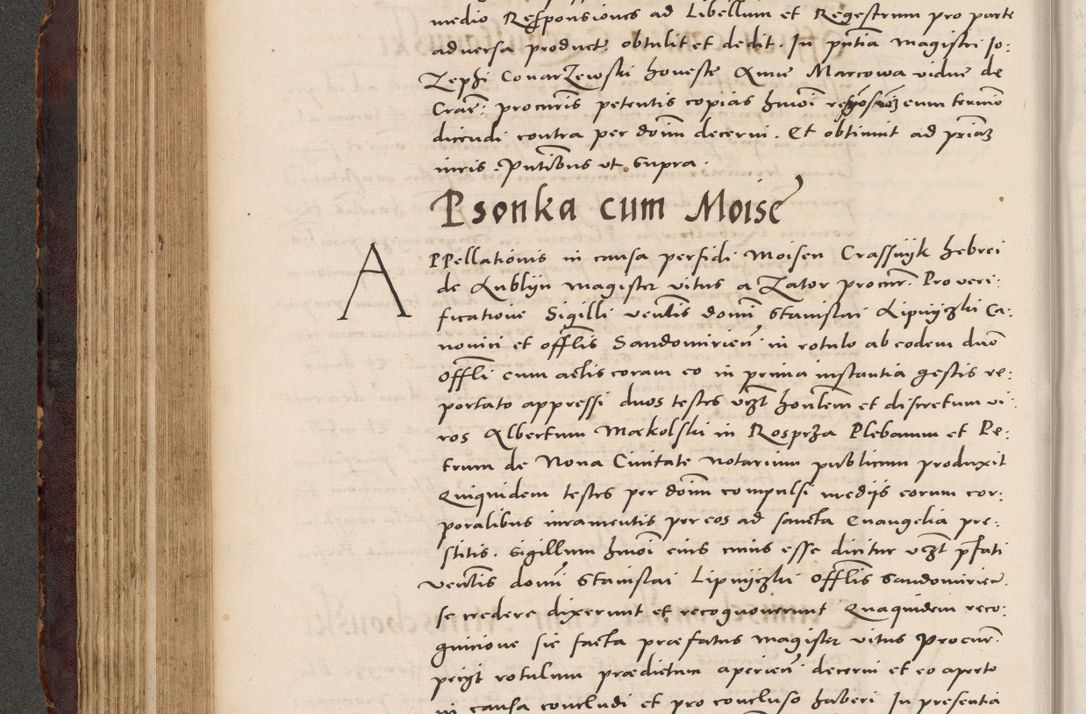 medio Responsiones ad Libellum et Regestrum pro parte
adversa product. obtulit et dedit. In pntia magistri Io:
Zephi ConarZewski honeste Anne Marcowa vidue de
Crac: procuris petentis copias hmoi responsio eum termino
dicendi contra per donim decerni. Et obtinuit ad primas
iuris. Pntibus ut supra.
Psonka cum Moise
APPellationis in causa perfidi Moisen Crassnyk hebrei
de Lublyn magister vitus a Zator procur. Pro veri:
ficatione Sigilli venlis domi Stanislai Lipnyczki Ca:
nonici et offlis Sandomirien in rotulo ab eodem dno
offli cum actis coram eo in prima instantia gestis re:
portato appressi duos testes vzt honlem et discretum vi:
ros Albertum Mackolski in Rosprza Plebanum et Pe:
trum de Nova Civitate notarium publicum produxit
Quiquidem testes per donim compulsi medijs eorum cor:
poralibus iuramentis per eos ad sancta Evangelia pre:
stitis. Sigillum hmoi eius cuius esse dicitur vzt pfati
venlis domi Stanislai Lipnyczki offlis Sandomirien.
se credere dixerunt et recognoverunt Quaquidem reco:
gnicione sic facta præfatus magister vitus Procur.
petijt rotulum prædictum aperien decerni et eo aperto
in causa concludi et pro concluso haberi In presentia